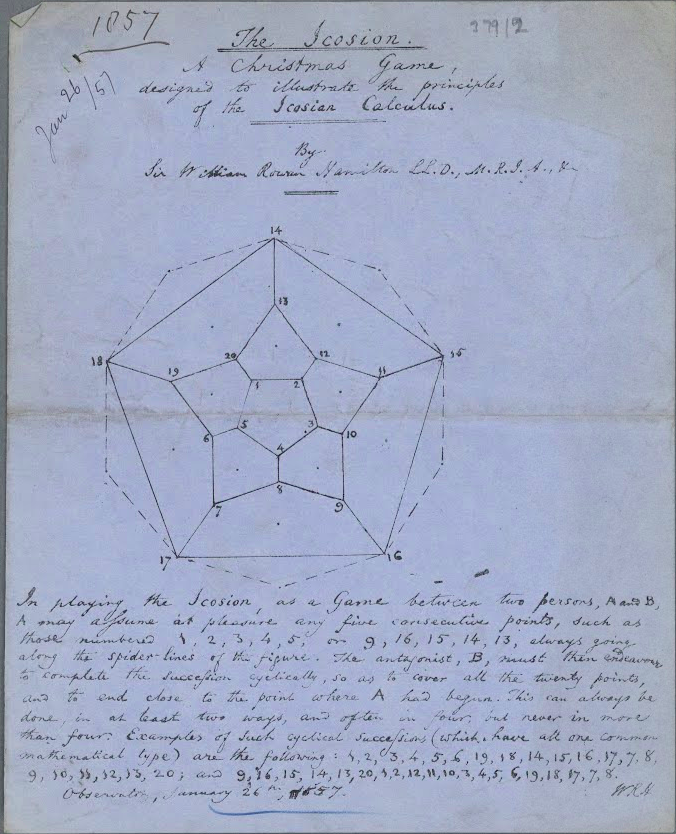 1857
379/2
Jan 26/57
The Icosion.
A Christmas Game,
designed to illustrate the principles
of the Icosian Calculus.
By
Sir William Rowan Hamilton LL.D., M.R.I.A., &c
14
13
18
19
20
12
11
15
1
2
5
3
6
4
10
8
7
9
17
16
In playing the Icosion, as a Game between two persons, A and B,
A may assume at pleasure any five consecutive points, such as
those numbered 1, 2, 3, 4, 5, or 9, 16, 15, 14, 13, always going
along the spider-lines of the figure. The antagonist, B, must then endeavour
to complete the succession cyclically, so as to cover all the twenty points,
and to end close to the point where A had begun. This can always be
done, in at least two ways, and often in four, but never in more
than four. Examples of such cyclical successions (which have all one common
mathematical type) are the following: 1, 2, 3, 4, 5, 6, 19, 18, 14, 15, 16, 17, 7, 8,
9, 10, 11, 12, 13, 20; and 9, 16, 15, 14, 13, 20, 1, 2, 12, 11, 10, 3, 4, 5, 6, 19, 18, 17, 7, 8.
Observatory, January 26th, 1857. W.R.H.